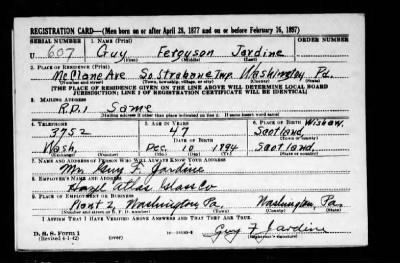 REGISTRATION CARD—(Men born on or after April 28, 1877 and on or before February 16, 1897)
SERIAL NUMBER 1. NAME (Print) ORDER NUMBER
U 607 Guy Ferguson Jardine
(First) (Middle) (Last)
2. PLACE OF RESIDENCE (Print)
McClane Ave So. Strabane Twp. Washington Pa.
(Number and street) (Town, township, village, or city) (County) (State)
[THE PLACE OF RESIDENCE GIVEN ON THE LINE ABOVE WILL DETERMINE LOCAL BOARD
JURISDICTION; LINE 2 OF REGISTRATION CERTIFICATE WILL BE IDENTICAL]
3. MAILING ADDRESS
R.D.1 Same
[Mailing address if other than place indicated on line 2. If same insert word same]
4. TELEPHONE 5. AGE IN YEARS 6. PLACE OF BIRTH
3752 47 Wishaw
Scotland
DATE OF BIRTH (Town or county)
Wash. Dec. 10 1894 Scotland.
(Exchange) (Number) (Mo.) (Day) (Yr.) (State or country)
7. NAME AND ADDRESS OF PERSON WHO WILL ALWAYS KNOW YOUR ADDRESS
Mrs Guy F. Jardine
8. EMPLOYER'S NAME AND ADDRESS
Hazel Atlas Glass Co
9. PLACE OF EMPLOYMENT OR BUSINESS
Plant 2, Washington, Pa. Washington, Pa.
(Number and street or R. F. D. number) (Town) (County) (State)
I AFFIRM THAT I HAVE VERIFIED ABOVE ANSWERS AND THAT THEY ARE TRUE.
D. S. S. Form 1
(Revised 4-1-42) (over) Guy F Jardine
(Registrant's signature)